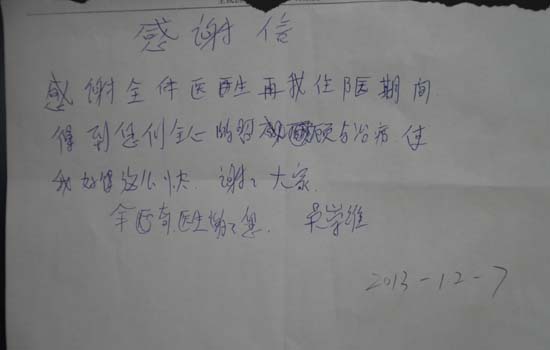 感谢信
感谢全体医生再我住院期间
得到您们全心的照顾与治病使
我好得这么快.谢谢大家.
医生谢谢您.吴学维
2013-12-7